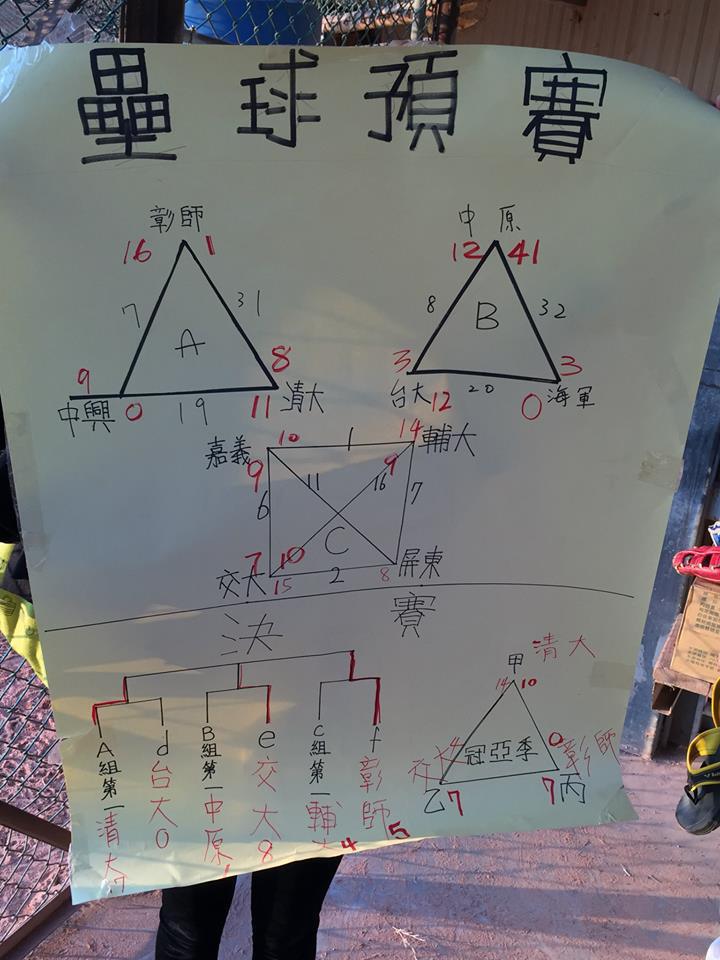 壘球預賽
彰師
16 1
7 31
A
9 8
中興 0 19 11 清大
中原
12 41
8 32
B
3 3
台大 12 20 0 海軍
嘉義 10 1 14 輔大
9 9
6 11 16 7
C
7 10
交大 15 2 8 屏東
決賽
A組第一清大7
d台大0
B組第一中原1
e交大8
C組第一輔大4
f彰師5
甲 清大
14 10
交大 冠亞季 0 彰師
乙 7 7 丙